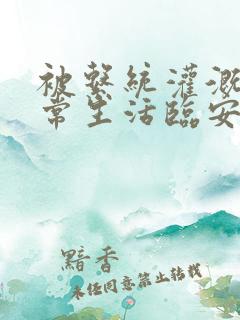 被系統灌溉
常生活臨安
黯香
未經同意禁止轉載